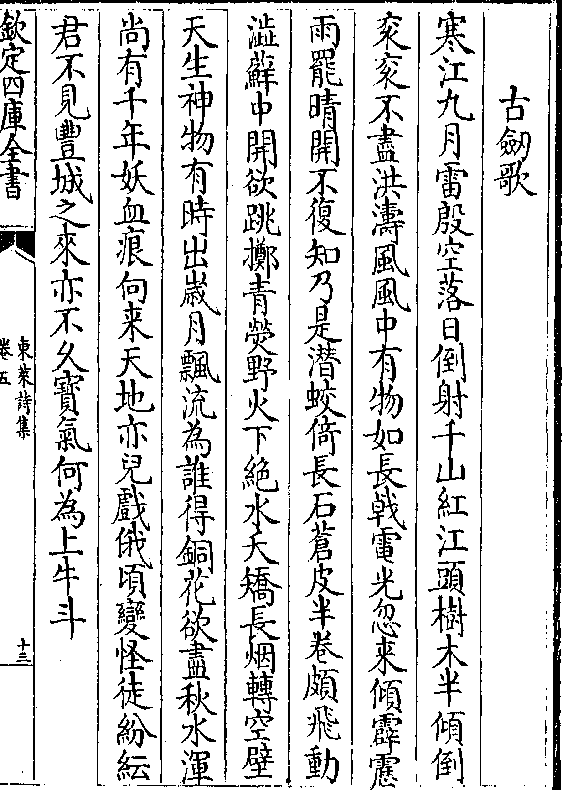 古劒歌
寒江九月雷殷空落日倒射千山紅江頭樹木半傾倒
衮衮不盡洪濤風風中有物如長戟雷光忽来傾霹靂
雨罷晴開不復知乃是潜蛟倚長石蒼皮半卷頗飛動
澁蘚中開欲跳擲青熒野火下絶水夭矯長烟轉空壁
天生神物有時出嵗月飄流為誰得銅花欲盡秋水渾
尚有千年妖血痕向来天地亦兒戲俄頃變怪徒紛紜
君不見豐城之來亦不久寶氣何為上牛斗
欽定四庫全書
東萊詩集
卷五
十三